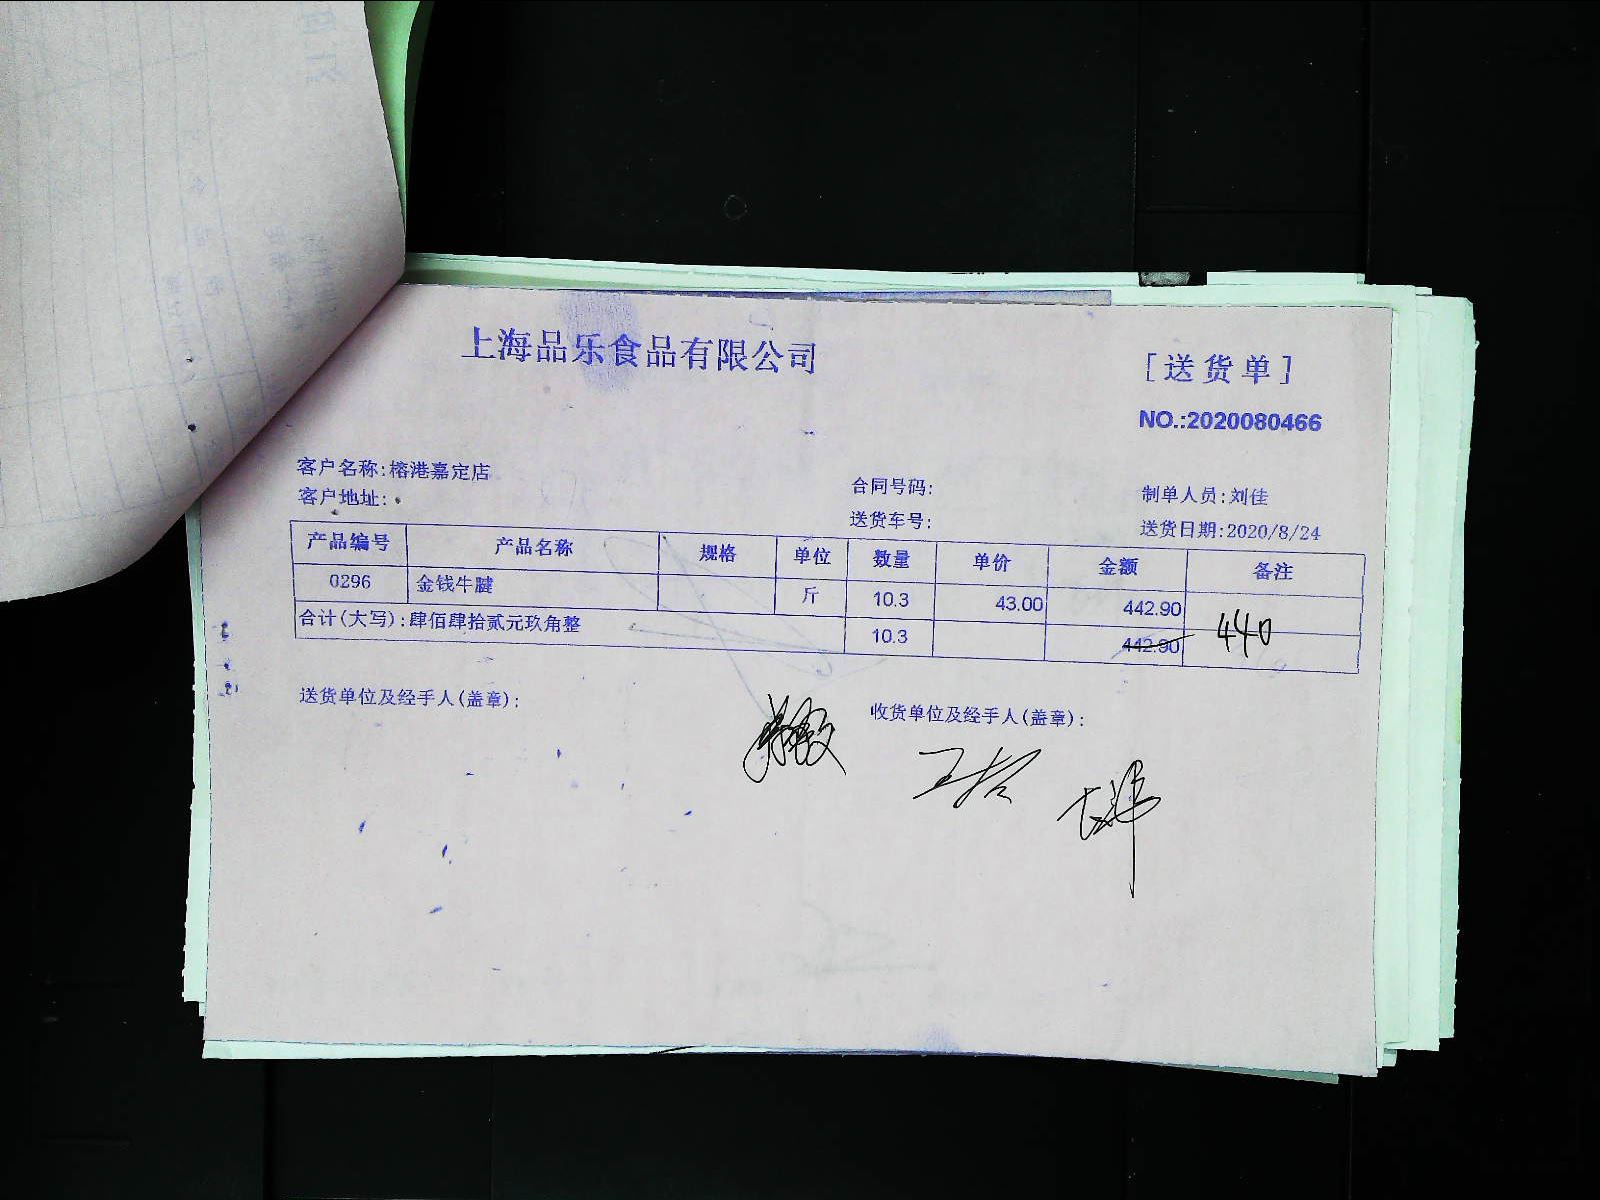 上海品乐食品有限公司
[送货单]
NO.:2020080466
客户名称:榕港嘉定店
客户地址:
合同号码:
送货车号:
制单人员:刘佳
送货日期:2020/8/24
产品编号 产品名称 规格 单位 数量 单价 金额 备注
0296 金钱牛腱 斤 10.3 43.00 442.90
合计(大写):肆佰肆拾贰元玖角整 10.3 442.90 440
送货单位及经手人(盖章):
收货单位及经手人(盖章):